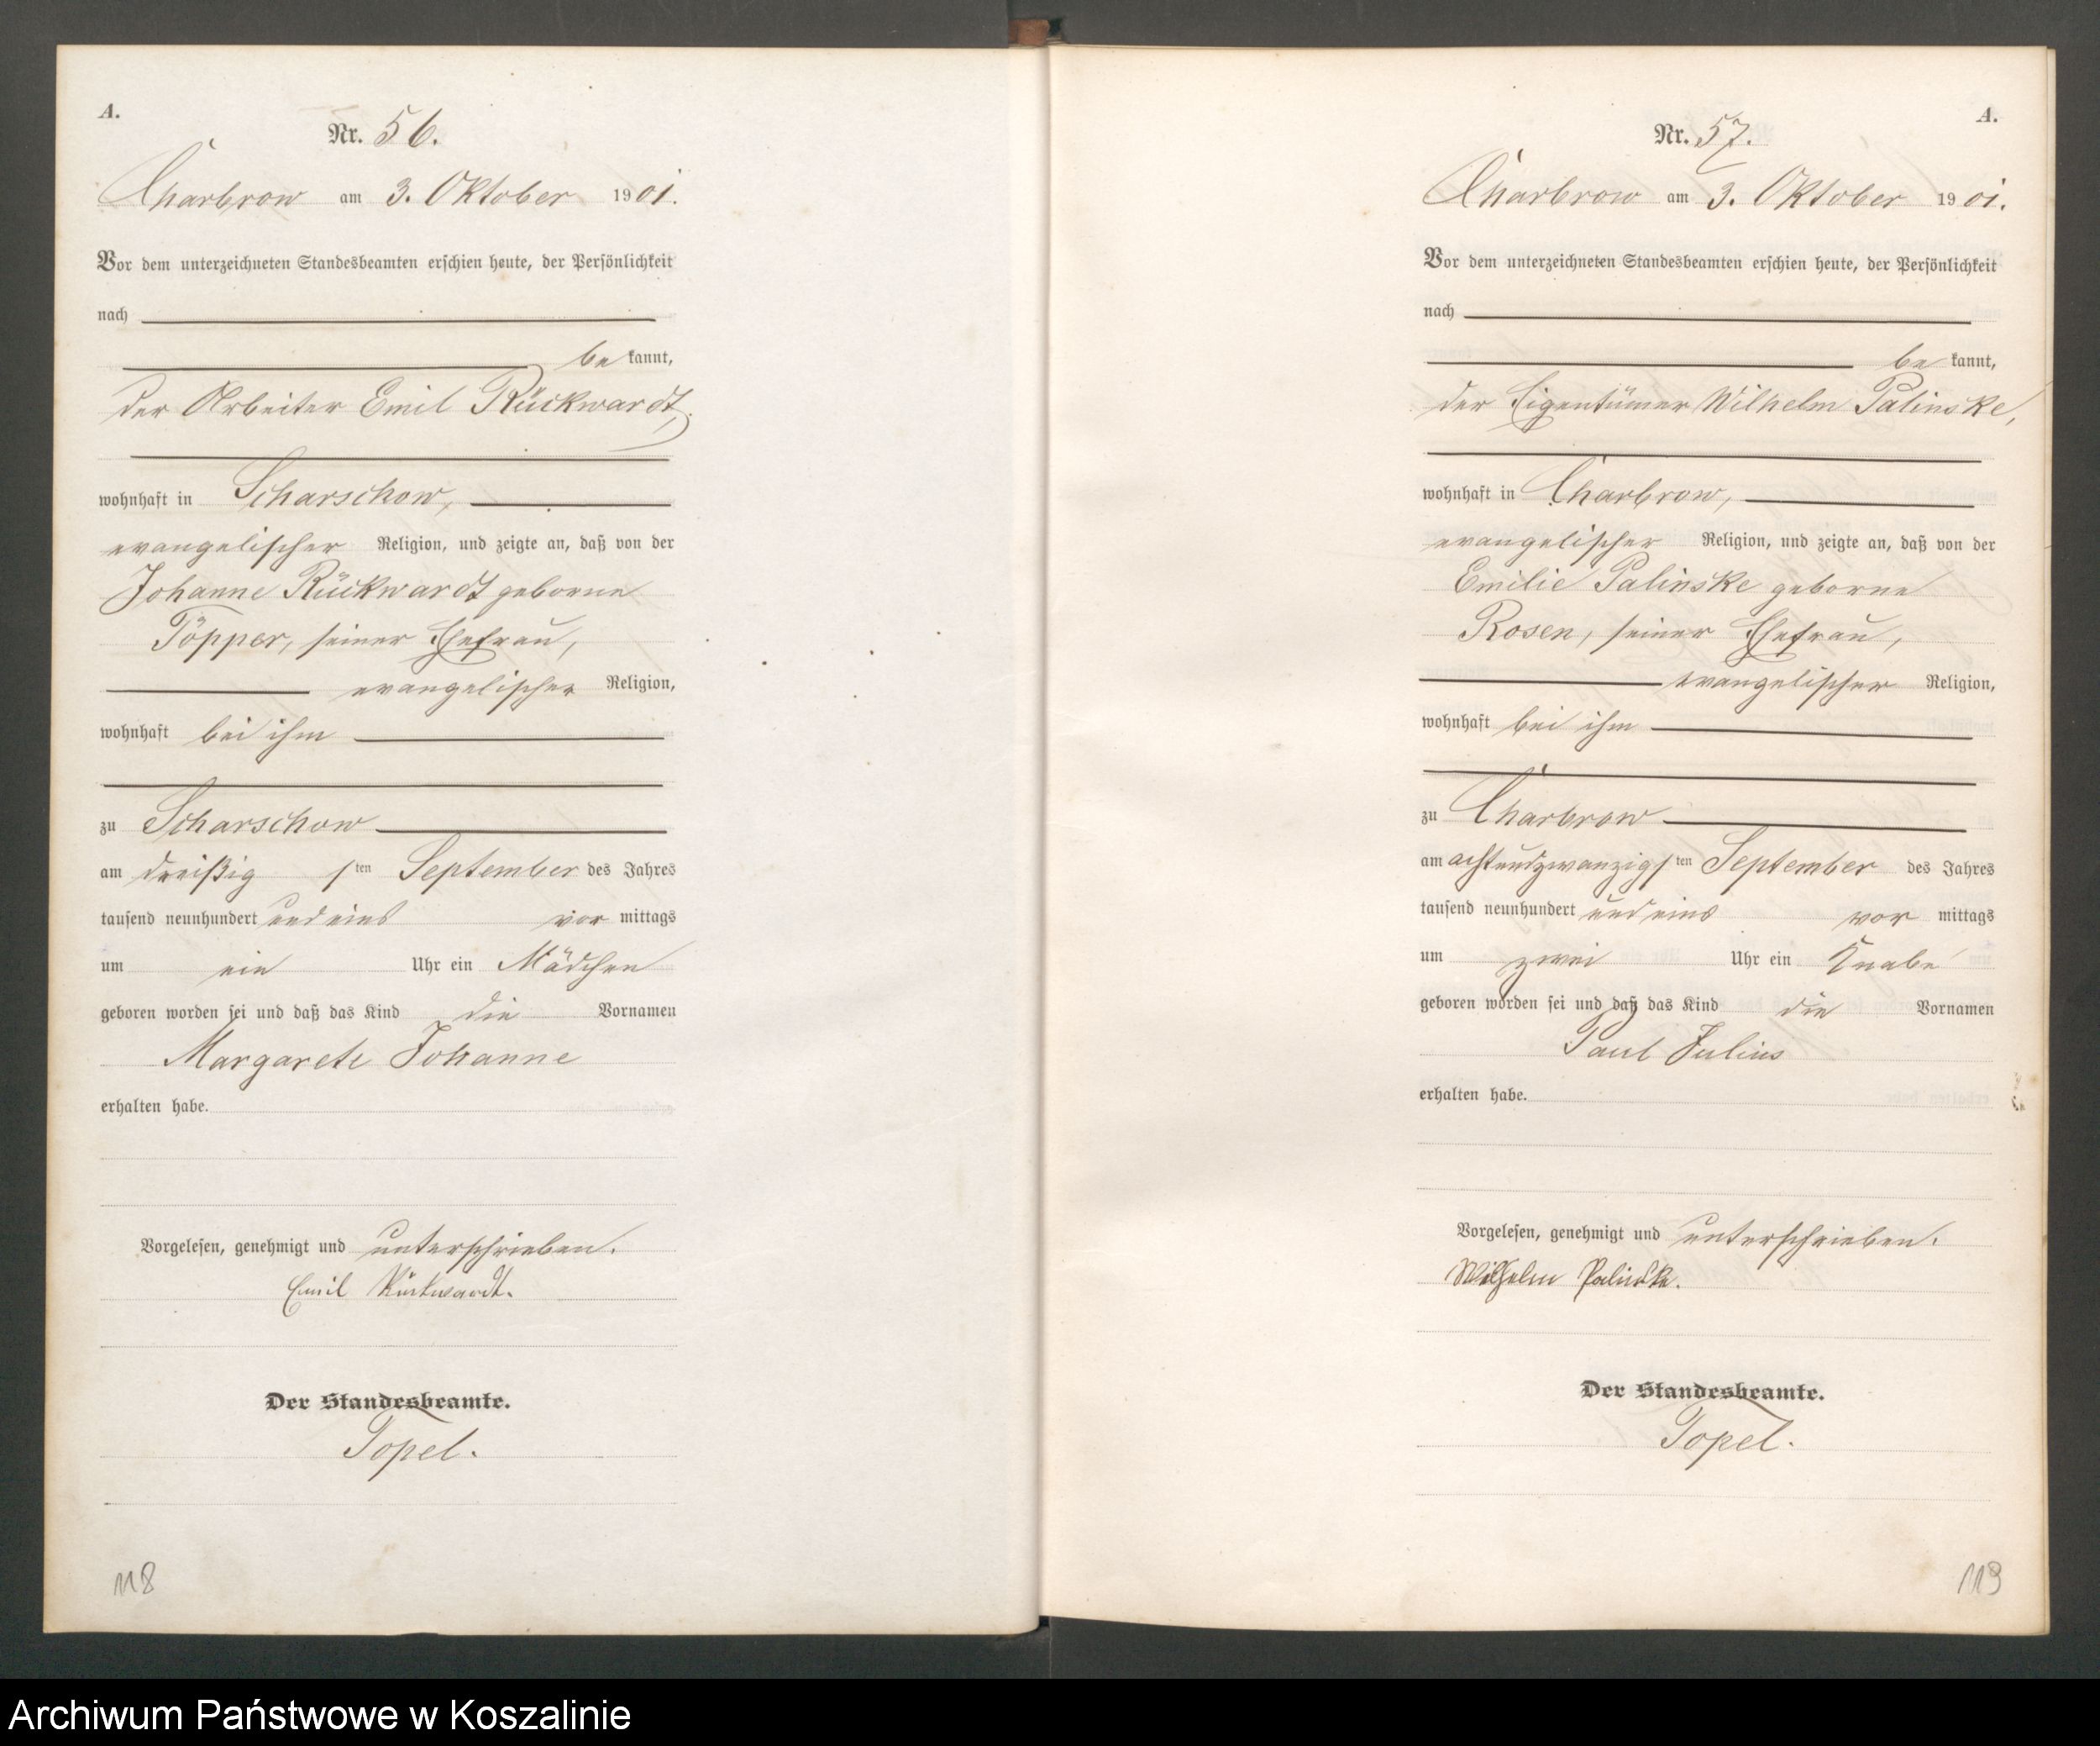 A.
Nr. 56.
Charbrow am 3. Oktober 1901.
Vor dem unterzeichneten Standesbeamten erschien heute, der Persönlichkeit
nach
be kannt,
der Arbeiter Emil Rückwardt,
wohnhaft in Scharschow,
evangelischer Religion, und zeigte an, daß von der
Johanne Rückwardt geborne
Töpper, seiner Ehefrau,
evangelischer Religion,
wohnhaft bei ihm
zu Scharschow
am dreißig ten September des Jahres
tausend neunhundert und eins vor mittags
um ein Uhr ein Mädchen
geboren worden sei und daß das Kind die Vornamen
Margarete Johanne
erhalten habe.
Vorgelesen, genehmigt und unterschrieben.
Emil Rückwardt.
Der Standesbeamte.
Topel.
118
A.
Nr. 57.
Charbrow am 3. Oktober 1901.
Vor dem unterzeichneten Standesbeamten erschien heute, der Persönlichkeit
nach
be kannt,
der Eigentümer Wilhelm Palinske,
wohnhaft in Charbrow,
evangelischer Religion, und zeigte an, daß von der
Emilie Palinske geborne
Rosen, seiner Ehefrau,
evangelischer Religion,
wohnhaft bei ihm
zu Charbrow
am achtundzwanzig ten September des Jahres
tausend neunhundert und eins vor mittags
um zwei Uhr ein Knabe
geboren worden sei und daß das Kind die Vornamen
Paul Julius
erhalten habe.
Vorgelesen, genehmigt und unterschrieben.
Wilhelm Palinske.
Der Standesbeamte.
Topel.
119
Archiwum Państwowe w Koszalinie